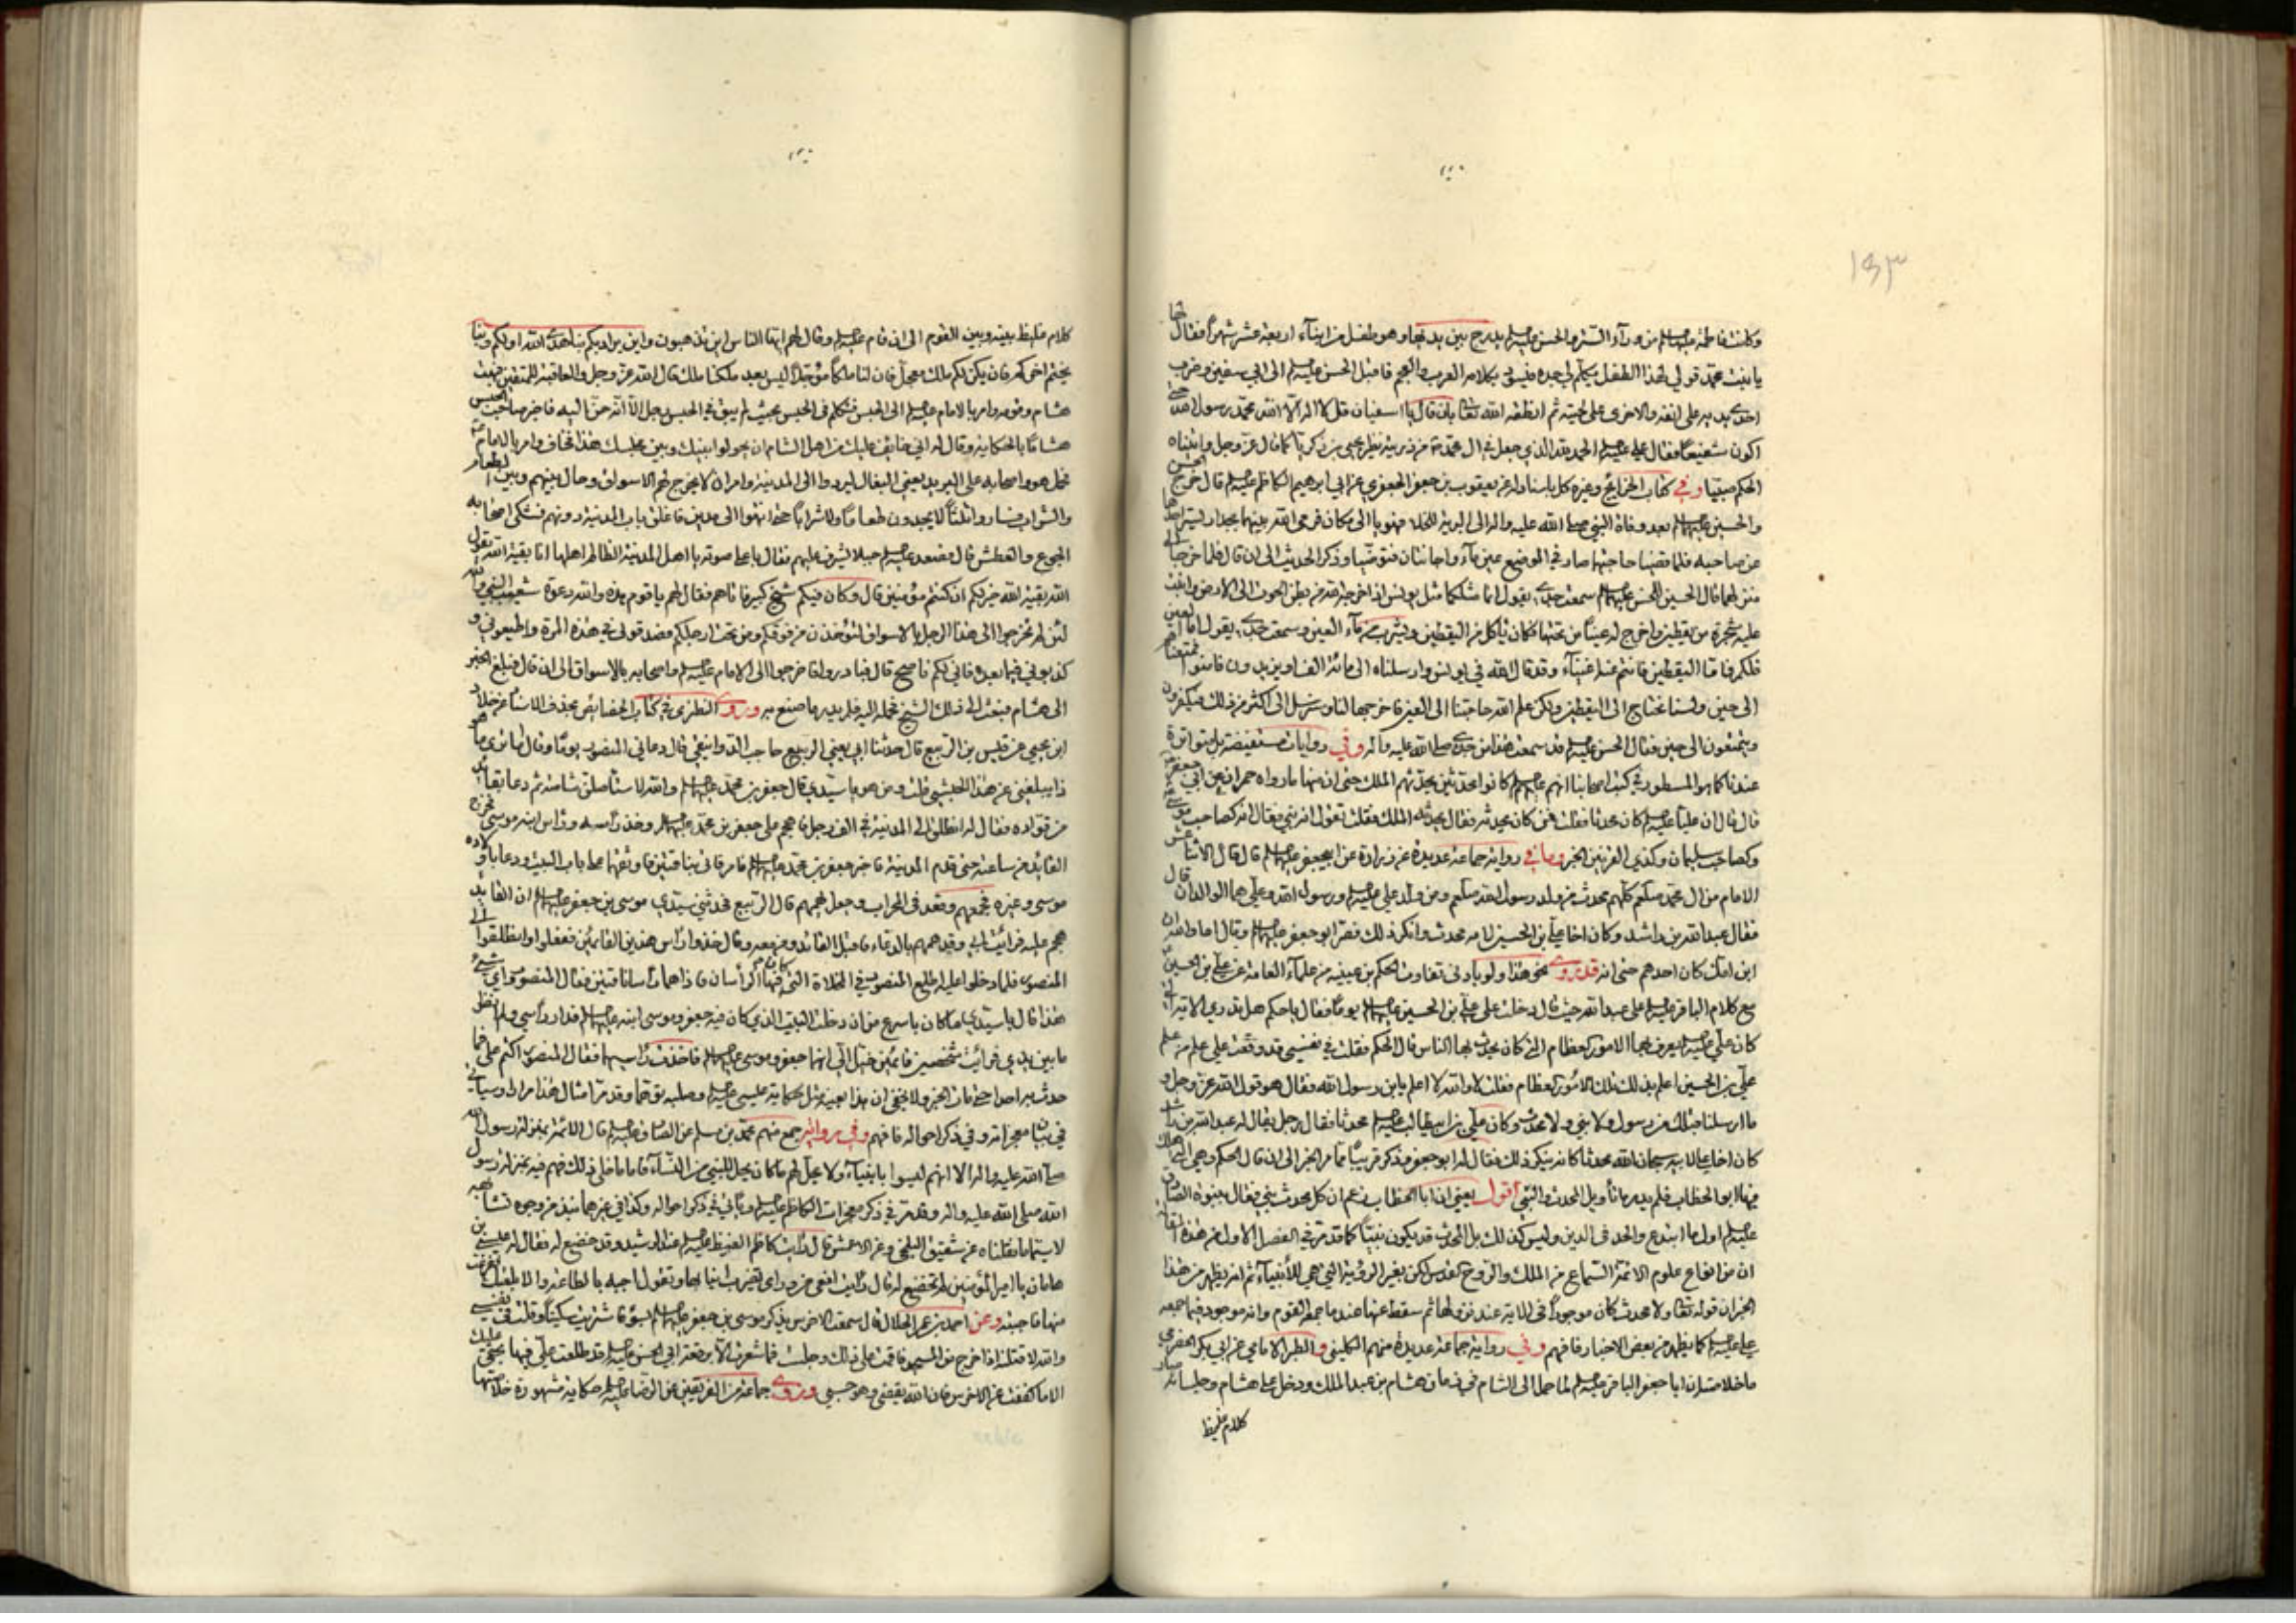 ١٥٣
وكانت فاطمة عليها السلم من ورآء الستر والحسن عليه السلم يدرج بين يديها وهو طفل من ابنآء اربعة عشر شهرا فقال لها
يا بنت محمد قولي لهذا الطفل يكلم لي جده فيسود بكلامه العرب والعجم فاقبل الحسن عليه السلم الى ابي سفين وضرب
احدى يديه على انفه والاخرى على لحيته ثم انطقه الله تعالى بان قال يا ابا سفيان قل لا اله الا الله محمد رسول الله حتى
اكون شفيعا فقال علي عليه السلم الحمد لله الذي جعل في ال محمد من ذرية نظير يحيى بن زكريا كما قال عز وجل واتيناه
الحكم صبيا وفي كتاب الخرائج وغيره كل باسناده عن يعقوب بن جعفر الجعفري عن ابي ابرهيم الكاظم عليه السلم قال خرج الحسن
والحسين عليهما السلم بعد وفاة النبي صلى الله عليه واله الى البرية للخلاء فهويا الى مكان فرمى الله بينهما بجدار يستر احدهما
عن صاحبه فلما قضيا حاجتهما صار في الموضع عين مآء واجانتان فتوضيا وذكر الحديث الى ان قال فلما خرجا الى
منزلهما قال الحسين للحسن عليهما السلم سمعت جدي يقول انما مثلكما مثل يونس اذ اخرجه الله من بطن الحوت الى الارض وانبت
عليه شجرة من يقطين واخرج له عينا من تحتها فكان ياكل من اليقطين ويشرب من مآء العين وسمعت جدي يقول اما العين
فلكم واما اليقطين فانتم عنه اغنيآء وقد قال الله في يونس وارسلناه الى مائة الف او يزيدون فامنوا فمتعناهم
الى حين ولسنا نحتاج الى اليقطين ولكن علم الله حاجتنا الى العين فاخرجها لنا وسنرسل الى اكثر من ذلك فيكفرون
ويتمتعون الى حين فقال الحسن عليه السلم قد سمعت هذا من جدي صلى الله عليه واله وفي روايات مستفيضة بل متواترة
عندنا كما هو المسطور في كتب اصحابنا انهم عليهم السلم كانوا محدثين يحدثهم الملك حتى ان منها ما رواه حمران عن ابي جعفر
قال قال ان عليا عليه السلم كان محدثا فقلت فمن كان يحدثه فقال يحدثه الملك فقلت تقول انه نبي فقال انه كصاحب موسى
وكصاحب سليمان وكذي القرنين الخبر وما في رواية جماعة عديدة عن زرارة عن ابي جعفر عليه السلم قال قال الاثنا عشر
الامام من ال محمد كلهم محدث من ولد رسول الله ومن ولد علي عليه السلم ورسول الله وعلي هما الوالدان قال
فقال عبد الله بن راشد وكان اخا علي بن الحسين لامه محدث وانكر ذلك فصر ابو جعفر عليه السلم وقال اما والله ان
ابن امك كان احدهم حتى انه قد روى نحو هذا ولو بادنى تفاوت الحكم بن عيينه من علمآء العامة عن علي بن الحسين
مع كلام الباقر عليه السلم على عبد الله حيث قال دخلت على علي بن الحسين عليه السلم يوما فقال يا حكم هل تدري الاية التي
كان علي عليه السلم يعرف بها الامور العظام التي كان يحدث بها الناس قال الحكم فقلت في نفسي قد وقعت على علم من علم
علي بن الحسين اعلم بذلك تلك الامور العظام فقلت لا والله لا اعلم يابن رسول الله فقال هو قول الله عز وجل و
ما ارسلنا من قبلك من رسول ولا نبي ولا محدث وكان علي بن ابي طالب عليه السلم محدثا فقال رجل يقال له عبد الله بن
كان اخا علي لامه سبحان الله محدثا كانه ينكر ذلك فقال له ابو جعفر فذكر قريبا مما مر الخبر الى ان قال الحكم وهي التي هلك
فيها ابو الخطاب فلم يدر ما تاويل المحدث والنبي اقول يعني ان ابا الخطاب زعم ان كل محدث نبي فقال بنبوة الصادق
عليه السلم اول ما ابتدع والحد في الدين وليس كذلك بل المحدث قد يكون نبيا كما قد مر في الفصل الاول من هذه
ان من انواع علوم الائمة السماع من الملك والروح القدس لكن بغير الرؤية التي هي للأنبيآء ثم انه يظهر من هذا
الخبر ان قوله تعالى ولا محدث كان موجودا في الاية عند نزولها ثم سقط عنها عند ما جمعه القوم وانه موجود فيما جمعه
علي عليه السلم كما يظهر من بعض الاخبار فافهم وفي رواية جماعة عديدة منهم الكليني و الطبر الامامي عن ابي بكر الحضرمي
ما خلاصته ان ابا جعفر الباقر عليه السلم لما حمل الى الشام في زمان هشام بن عبد الملك ودخل على هشام وجلس صار
كلام غليظ
كلام غليظ بينه وبين القوم الى ان قام عليه السلم وقال لهم ايها الناس اين تذهبون واين يراد بكم بنا هدى الله اولكم وبنا
يختم اخركم فان يكن لكم ملك معجل فان لنا ملكا مؤجلا وليس بعد ملكنا ملك قال الله عز وجل والعاقبة للمتقين فبهت
هشام وقومه وامر بالامام عليه السلم الى الحبس فتكلم في الحبس بحيث لم يبق في الحبس رجل الا انه حن اليه فاخبر صاحب الحبس
هشاما بالحكاية وقال له اني خائف عليك من اهل الشام ان يحولوا بينك وبين مجلسك هذا فخاف وامر بالامام
فحمل هو واصحابه على البريد يعني البغال ليردوا الى المدينة وامر ان لا يخرج لهم الاسواق وحال بينهم وبين الطعام
والشراب فساروا ثلثا لا يجدون طعاما ولا شرابا حتى انتهوا الى مدين فاغلق باب المدينة دونهم فشكى اصحابه
الجوع والعطش قال فصعد عليه السلم جبلا ليشرف عليهم فقال باعلى صوته يا اهل المدينة الظالم اهلها انا بقية الله يقول
الله بقية الله خير لكم ان كنتم مؤمنين قال وكان فيكم شيخ كبير فاتاهم فقال لهم يا قوم هذه والله دعوة شعيب النبي والله
لئن لم تخرجوا الى هذا الرجل بالاسواق لتؤخذن من فوقكم ومن تحت ارجلكم فصدقوني في هذه المرة واطيعوني و
كذبوني فيما بعد فاني لكم ناصح قال فبادروا فاخرجوا الى الامام عليه السلم واصحابه بالاسواق الى ان قال فبلغ الخبر
الى هشام فبعث الى ذلك الشيخ فحمله اليه فلم يدر ما صنع به وروى النطنزي في كتاب الخصائص بحذف الاسناد عن خلاد
ابن يحيى عن قيس بن الربيع قال حدثنا ابي يعني الربيع حاجب الدوانيقي قال دعاني المنصور يوما وقال اما ترى ما هو
ذا يبلغني عن هذا الحبشي قلت ومن هو يا سيدي قال جعفر بن محمد عليهما السلم والله لاستاصلن شافته ثم دعا بقائد
من قواده فقال له انطلق الى المدينة في الف رجل فاهجم على جعفر بن محمد عليهما السلم وخذ راسه وراس ابنه موسى فخرج
القائد من ساعته حتى قدم المدينة فاخبر جعفر بن محمد عليهما السلم فامر فاتى بناقتين فاوثقهما على باب البيت ودعا باولاده
موسى وغيره فجمعهم وقعد في المحراب وجعل يهمهم قال الربيع فحدثني سيدي موسى بن جعفر عليه السلم ان القائد
هجم عليه فرايت ابي وقد همهم بالدعاء فاقبل القائد ومن معه وقال خذوا راس هذين القائمين ففعلوا وانطلقوا الى
المنصور فلما دخلوا عليه اطلع المنصور في المخلاة التي كان فيها الراسان فاذا هما راسا ناقتين فقال المنصور واي شئ
هذا قال يا سيدي ما كان باسرع من ان دخلت البيت الذي كان فيه جعفر وموسى ابنه عليهما السلم فدار راسي ولم انظر
ما بين يدي فرايت شخصين قائمين خيل الي انهما جعفر وموسى عليهما السلم فاخذت راسيهما فقال المنصور اكتم علي فما
حدث به احدا حتى مات الخبر ولا يخفى ان هذا بعينه مثل حكاية عيسى عليه السلم وصلبه توهما وقد مر امثال هذا مرارا وسياتي
في بيان معجزاته وفي ذكر احواله فافهم وفي رواية جمع منهم محمد بن مسلم عن الصادق عليه السلم قال الائمة بمنزلة رسول الله
صلى الله عليه واله الا انهم ليسوا بانبيآء ولا يحل لهم ما كان يحل للنبي من النسآء فاما ما خلى ذلك فهم فيه بمنزلة رسول
الله صلى الله عليه واله وقد مر في ذكر معجزات الكاظم عليه السلم وياتي في ذكر احواله وكذا في غيرهما نبذ من وجوه تشابهه
لاسيما ما نقلناه عن شقيق البلخي وعن الاعمش قال رايت كاظم الغيظ عليه السلم عند الرشيد وقد خضع له فقال له عيسى بن
هامان يا امير المؤمنين لم تخضع له قال رايت افعى من ورائي تضرب انيابها وتقول اجبه بالطاعة والا بلعتك ففزعت
منها فاجبته وعن احمد بن عمر الحلال قال سمعت الاخرس يذكر موسى بن جعفر عليهما السلم بسوء فاشتريت سكينا وقلت في نفسي
والله لاقتلنه اذا خرج من المسجد فاقمت على ذلك وجلست فما شعرت الا برقعة ابي الحسن عليه السلم قد طلعت علي فيها بحقي عليك
الا ما كففت عن الاخرس فان الله يقضي وهو حسبي وروى جماعة من الفريقين عن الرضا عليه السلم حكاية مشهورة خلاصتها